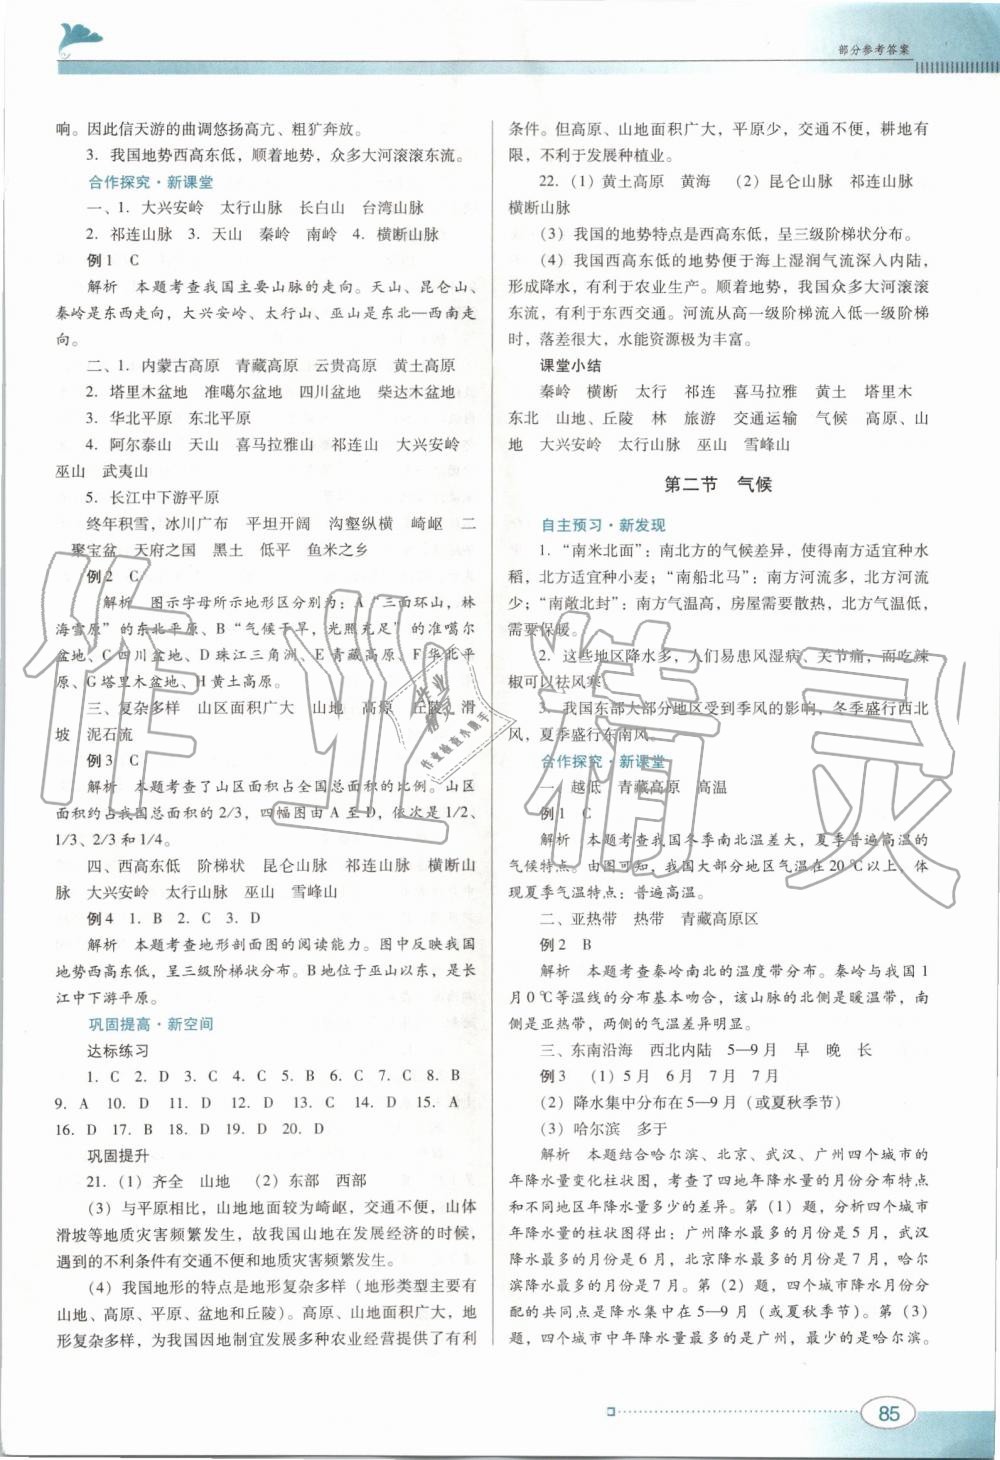 部分参考答案
响。因此信天游的曲调悠扬高亢、粗犷奔放。
3. 我国地势西高东低，顺着地势，众多大河滚滚东流。
合作探究·新课堂
一、1. 大兴安岭　太行山脉　长白山　台湾山脉
2. 祁连山脉　3. 天山　秦岭　南岭　4. 横断山脉
例1　C
解析　本题考查我国主要山脉的走向。天山、昆仑山、
秦岭是东西走向，大兴安岭、太行山、巫山是东北—西南走
向。
二、1. 内蒙古高原　青藏高原　云贵高原　黄土高原
2. 塔里木盆地　准噶尔盆地　四川盆地　柴达木盆地
3. 华北平原　东北平原
4. 阿尔泰山　天山　喜马拉雅山　祁连山　大兴安岭
巫山　武夷山
5. 长江中下游平原
终年积雪，冰川广布　平坦开阔　沟壑纵横　崎岖　二
聚宝盆　天府之国　黑土　低平　鱼米之乡
例2　C
解析　图示字母所示地形区分别为：A“三面环山，林
海雪原”的东北平原、B“气候干旱，光照充足”的准噶尔
盆地、C四川盆地、D珠江三角洲、E青藏高原、F华北平
原、G塔里木盆地、H黄土高原。
三、复杂多样　山区面积广大　山地　高原　丘陵　滑
坡　泥石流
例3　C
解析　本题考查了山区面积占全国总面积的比例。山区
面积约占我国总面积的2/3，四幅图由A至D，依次是1/2、
1/3、2/3和1/4。
四、西高东低　阶梯状　昆仑山脉　祁连山脉　横断山
脉　大兴安岭　太行山脉　巫山　雪峰山
例4　1. B　2. C　3. D
解析　本题考查地形剖面图的阅读能力。图中反映我国
地势西高东低，呈三级阶梯状分布。B地位于巫山以东，是长
江中下游平原。
巩固提高·新空间
达标练习
1. C　2. D　3. C　4. C　5. C　6. C　7. C　8. B
9. A　10. D　11. D　12. D　13. C　14. D　15. A
16. D　17. B　18. D　19. D　20. D
巩固提升
21.（1）齐全　山地　（2）东部　西部
（3）与平原相比，山地地面较为崎岖，交通不便，山体
滑坡等地质灾害频繁发生，故我国山地在发展经济的时候，
遇到的不利条件有交通不便和地质灾害频繁发生。
（4）我国地形的特点是地形复杂多样（地形类型主要有
山地、高原、平原、盆地和丘陵）。高原、山地面积广大，地
形复杂多样，为我国因地制宜发展多种农业经营提供了有利
条件。但高原、山地面积广大，平原少，交通不便，耕地有
限，不利于发展种植业。
22.（1）黄土高原　黄海　（2）昆仑山脉　祁连山脉
横断山脉
（3）我国的地势特点是西高东低，呈三级阶梯状分布。
（4）我国西高东低的地势便于海上湿润气流深入内陆，
形成降水，有利于农业生产。顺着地势，我国众多大河滚滚
东流，有利于东西交通。河流从高一级阶梯流入低一级阶梯
时，落差很大，水能资源极为丰富。
课堂小结
秦岭　横断　太行　祁连　喜马拉雅　黄土　塔里木
东北　山地、丘陵　林　旅游　交通运输　气候　高原、山
地　大兴安岭　太行山脉　巫山　雪峰山
第二节　气候
自主预习·新发现
1. “南米北面”：南北方的气候差异，使得南方适宜种水
稻，北方适宜种小麦；“南船北马”：南方河流多，北方河流
少；“南敞北封”：南方气温高，房屋需要散热，北方气温低，
需要保暖。
2. 这些地区降水多，人们易患风湿病、关节痛，而吃辣
椒可以祛风寒。
3. 我国东部大部分地区受到季风的影响，冬季盛行西北
风，夏季盛行东南风。
合作探究·新课堂
一、越低　青藏高原　高温
例1　C
解析　本题考查我国冬季南北温差大，夏季普遍高温的
气候特点。由图可知，我国大部分地区气温在20℃以上，体
现夏季气温特点：普遍高温。
二、亚热带　热带　青藏高原区
例2　B
解析　本题考查秦岭南北的温度带分布。秦岭与我国1
月0℃等温线的分布基本吻合，该山脉的北侧是暖温带，南
侧是亚热带，两侧的气温差异明显。
三、东南沿海　西北内陆　5—9月　早　晚　长
例3　（1）5月　6月　7月　7月
（2）降水集中分布在5—9月（或夏秋季节）
（3）哈尔滨　多于
解析　本题结合哈尔滨、北京、武汉、广州四个城市的
年降水量变化柱状图，考查了四地年降水量的月份分布特点
和不同地区年降水量多少的差异。第（1）题，分析四个城市
年降水量的柱状图得出：广州降水最多的月份是5月，武汉
降水最多的月份是6月，北京降水最多的月份是7月，哈尔
滨降水最多的月份是7月。第（2）题，四个城市降水月份分
配的共同点是降水集中在5—9月（或夏秋季节）。第（3）
题，四个城市中年降水量最多的是广州，最少的是哈尔滨。
85
作业精灵